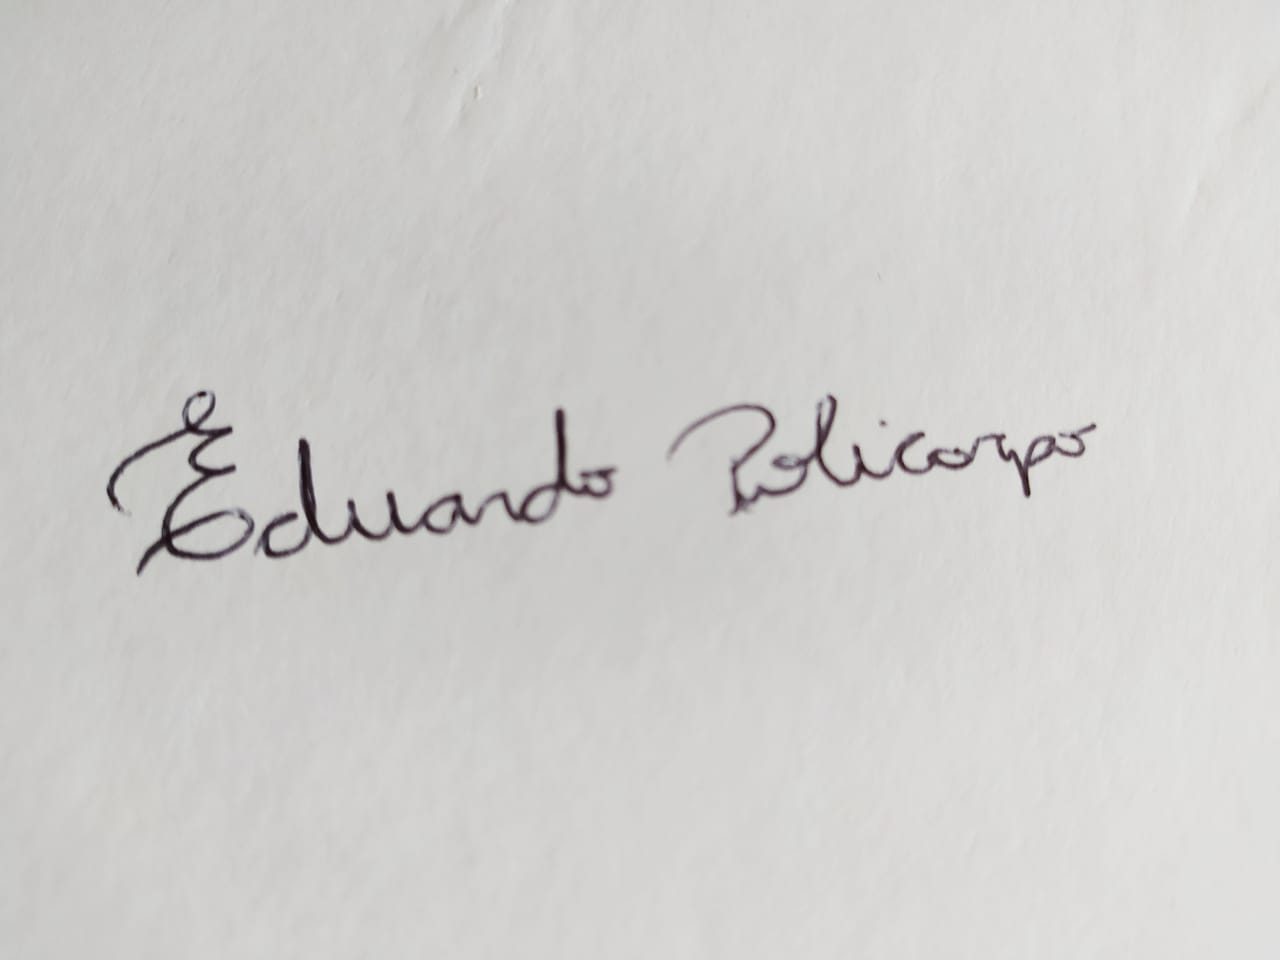 Eduardo Policorpo